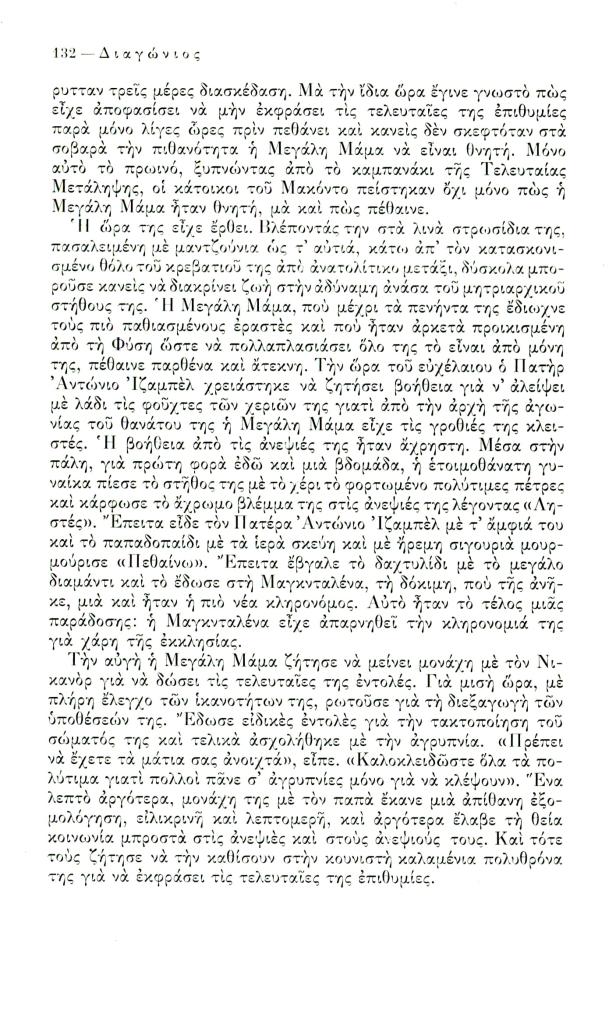 132 — Διαγώνιος
ρυτταν τρεῖς μέρες διασκέδαση. Μὰ τὴν ἴδια ὥρα ἔγινε γνωστὸ πὼς
εἶχε ἀποφασίσει νὰ μὴν ἐκφράσει τὶς τελευταῖες της ἐπιθυμίες
παρὰ μόνο λίγες ὧρες πρὶν πεθάνει καὶ κανεὶς δὲν σκεφτόταν στὰ
σοβαρὰ τὴν πιθανότητα ἡ Μεγάλη Μάμα νὰ εἶναι θνητή. Μόνο
αὐτὸ τὸ πρωινό, ξυπνώντας ἀπὸ τὸ καμπανάκι τῆς Τελευταίας
Μετάληψης, οἱ κάτοικοι τοῦ Μακόντο πείστηκαν ὄχι μόνο πὼς ἡ
Μεγάλη Μάμα ἦταν θνητή, μὰ καὶ πὼς πέθαινε.
Ἡ ὥρα της εἶχε ἔρθει. Βλέποντάς την στὰ λινὰ στρωσίδια της,
πασαλειμένη μὲ μαντζούνια ὡς τ' αὐτιά, κάτω ἀπ' τὸν κατασκονι-
σμένο θόλο τοῦ κρεβατιοῦ της ἀπὸ ἀνατολίτικο μετάξι, δύσκολα μπο-
ροῦσε κανεὶς νὰ διακρίνει ζωὴ στὴν ἀδύναμη ἀνάσα τοῦ μητριαρχικοῦ
στήθους της. Ἡ Μεγάλη Μάμα, ποὺ μέχρι τὰ πενήντα της ἔδιωχνε
τοὺς πιὸ παθιασμένους ἐραστὲς καὶ ποὺ ἦταν ἀρκετὰ προικισμένη
ἀπὸ τὴ Φύση ὥστε νὰ πολλαπλασιάσει ὅλο της τὸ εἶναι ἀπὸ μόνη
της, πέθαινε παρθένα καὶ ἄτεκνη. Τὴν ὥρα τοῦ εὐχέλαιου ὁ Πατὴρ
Ἀντόνιο Ἰζαμπὲλ χρειάστηκε νὰ ζητήσει βοήθεια γιὰ ν' ἀλείψει
μὲ λάδι τὶς φοῦχτες τῶν χεριῶν της γιατὶ ἀπὸ τὴν ἀρχὴ τῆς ἀγω-
νίας τοῦ θανάτου της ἡ Μεγάλη Μάμα εἶχε τὶς γροθιές της κλει-
στές. Ἡ βοήθεια ἀπὸ τὶς ἀνεψιές της ἦταν ἄχρηστη. Μέσα στὴν
πάλη, γιὰ πρώτη φορὰ ἐδῶ καὶ μιὰ βδομάδα, ἡ ἑτοιμοθάνατη γυ-
ναίκα πίεσε τὸ στῆθος της μὲ τὸ χέρι τὸ φορτωμένο πολύτιμες πέτρες
καὶ κάρφωσε τὸ ἄχρωμο βλέμμα της στὶς ἀνεψιές της λέγοντας «Λη-
στές». Ἔπειτα εἶδε τὸν Πατέρα Ἀντώνιο Ἰζαμπὲλ μὲ τ' ἄμφιά του
καὶ τὸ παπαδοπαίδι μὲ τὰ ἱερὰ σκεύη καὶ μὲ ἤρεμη σιγουριὰ μουρ-
μούρισε «Πεθαίνω». Ἔπειτα ἔβγαλε τὸ δαχτυλίδι μὲ τὸ μεγάλο
διαμάντι καὶ τὸ ἔδωσε στὴ Μαγκνταλένα, τὴ δόκιμη, ποὺ τῆς ἀνῆ-
κε, μιὰ καὶ ἦταν ἡ πιὸ νέα κληρονόμος. Αὐτὸ ἦταν τὸ τέλος μιᾶς
παράδοσης: ἡ Μαγκνταλένα εἶχε ἀπαρνηθεῖ τὴν κληρονομιά της
γιὰ χάρη τῆς ἐκκλησίας.
Τὴν αὐγὴ ἡ Μεγάλη Μάμα ζήτησε νὰ μείνει μονάχη μὲ τὸν Νι-
κανὸρ γιὰ νὰ δώσει τὶς τελευταῖες της ἐντολές. Γιὰ μισὴ ὥρα, μὲ
πλήρη ἔλεγχο τῶν ἱκανοτήτων της, ρωτοῦσε γιὰ τὴ διεξαγωγὴ τῶν
ὑποθέσεών της. Ἔδωσε εἰδικὲς ἐντολὲς γιὰ τὴν τακτοποίηση τοῦ
σώματός της καὶ τελικὰ ἀσχολήθηκε μὲ τὴν ἀγρυπνία. «Πρέπει
νὰ ἔχετε τὰ μάτια σας ἀνοιχτά», εἶπε. «Καλοκλειδῶστε ὅλα τὰ πο-
λύτιμα γιατὶ πολλοὶ πᾶνε σ' ἀγρυπνίες μόνο γιὰ νὰ κλέψουν». Ἕνα
λεπτὸ ἀργότερα, μονάχη της μὲ τὸν παπὰ ἔκανε μιὰ ἀπίθανη ἐξο-
μολόγηση, εἰλικρινῆ καὶ λεπτομερῆ, καὶ ἀργότερα ἔλαβε τὴ θεία
κοινωνία μπροστὰ στὶς ἀνεψιὲς καὶ στοὺς ἀνεψιούς τους. Καὶ τότε
τοὺς ζήτησε νὰ τὴν καθίσουν στὴν κουνιστὴ καλαμένια πολυθρόνα
της γιὰ νὰ ἐκφράσει τὶς τελευταῖες της ἐπιθυμίες.